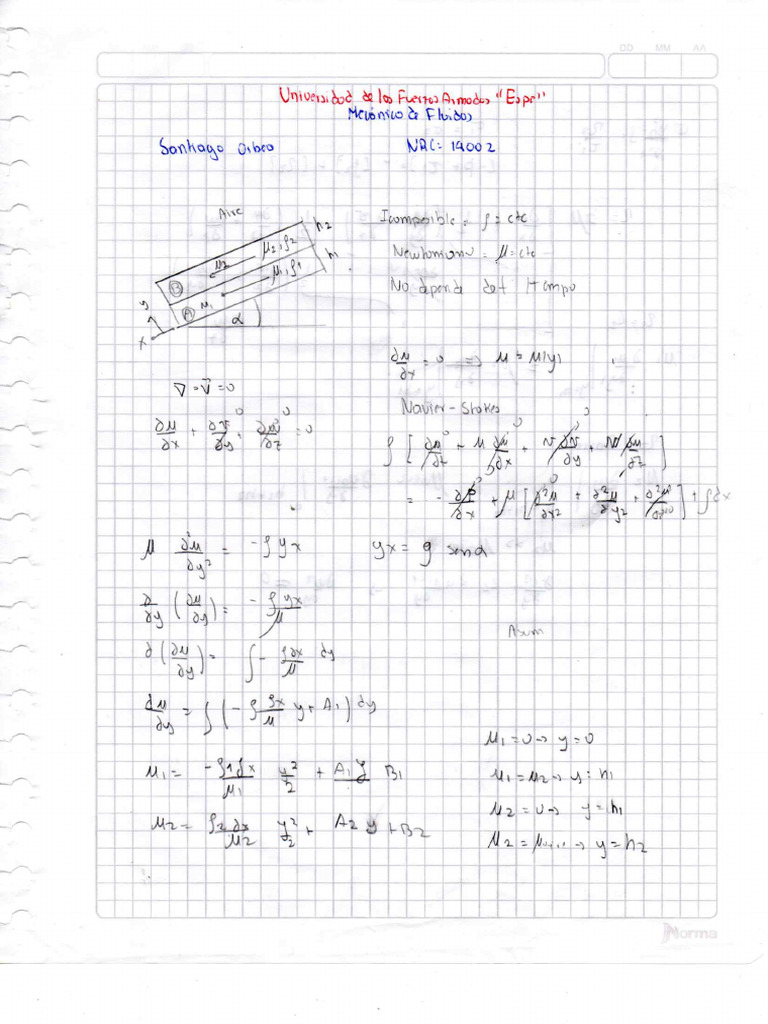 DD MM AA
Universidad de las Fuerzas Armadas "Espe"
Mecánica de Fluidos
Santiago NRC: 14002
Aire
h2
h1
μ2, ρ2
u2
μ1, ρ1
u1
B
A
y
x
α
Icompresible = ρ = cte
Newtoniano = μ = cte
No depende del tiempo
∂u/∂x = 0 => u = u(y)
∇ = V⃗ = 0
∂u/∂x + ∂v/∂y⁰ + ∂w/∂z⁰ = 0
Navier-Stokes
ρ [ ∂u/∂t⁰ + u ∂u/∂x⁰ + v ∂v/∂y⁰ + w ∂u/∂z⁰ ]
= - ∂P/∂x⁰ + μ [ ∂²u/∂x² + ∂²u/∂y² + ∂²u/∂z² ] + ρgx
μ ∂²u/∂y² = -ρgx gx = g senα
∂/∂y (∂u/∂y) = -ρgx/μ
∂(∂u/∂y) = ∫ - ρgx/μ dy
du/dy = ∫ (-ρ gx/μ y + A1) dy
u1 = -ρ1gx/μ1 y²/2 + A1y B1
u2 = ρ2gx/μ2 y²/2 + A2 y + B2
Asum
u1 = 0 → y = 0
u1 = u2 → y: h1
u2 = 0 → y = h1
→ y = h2
Norma